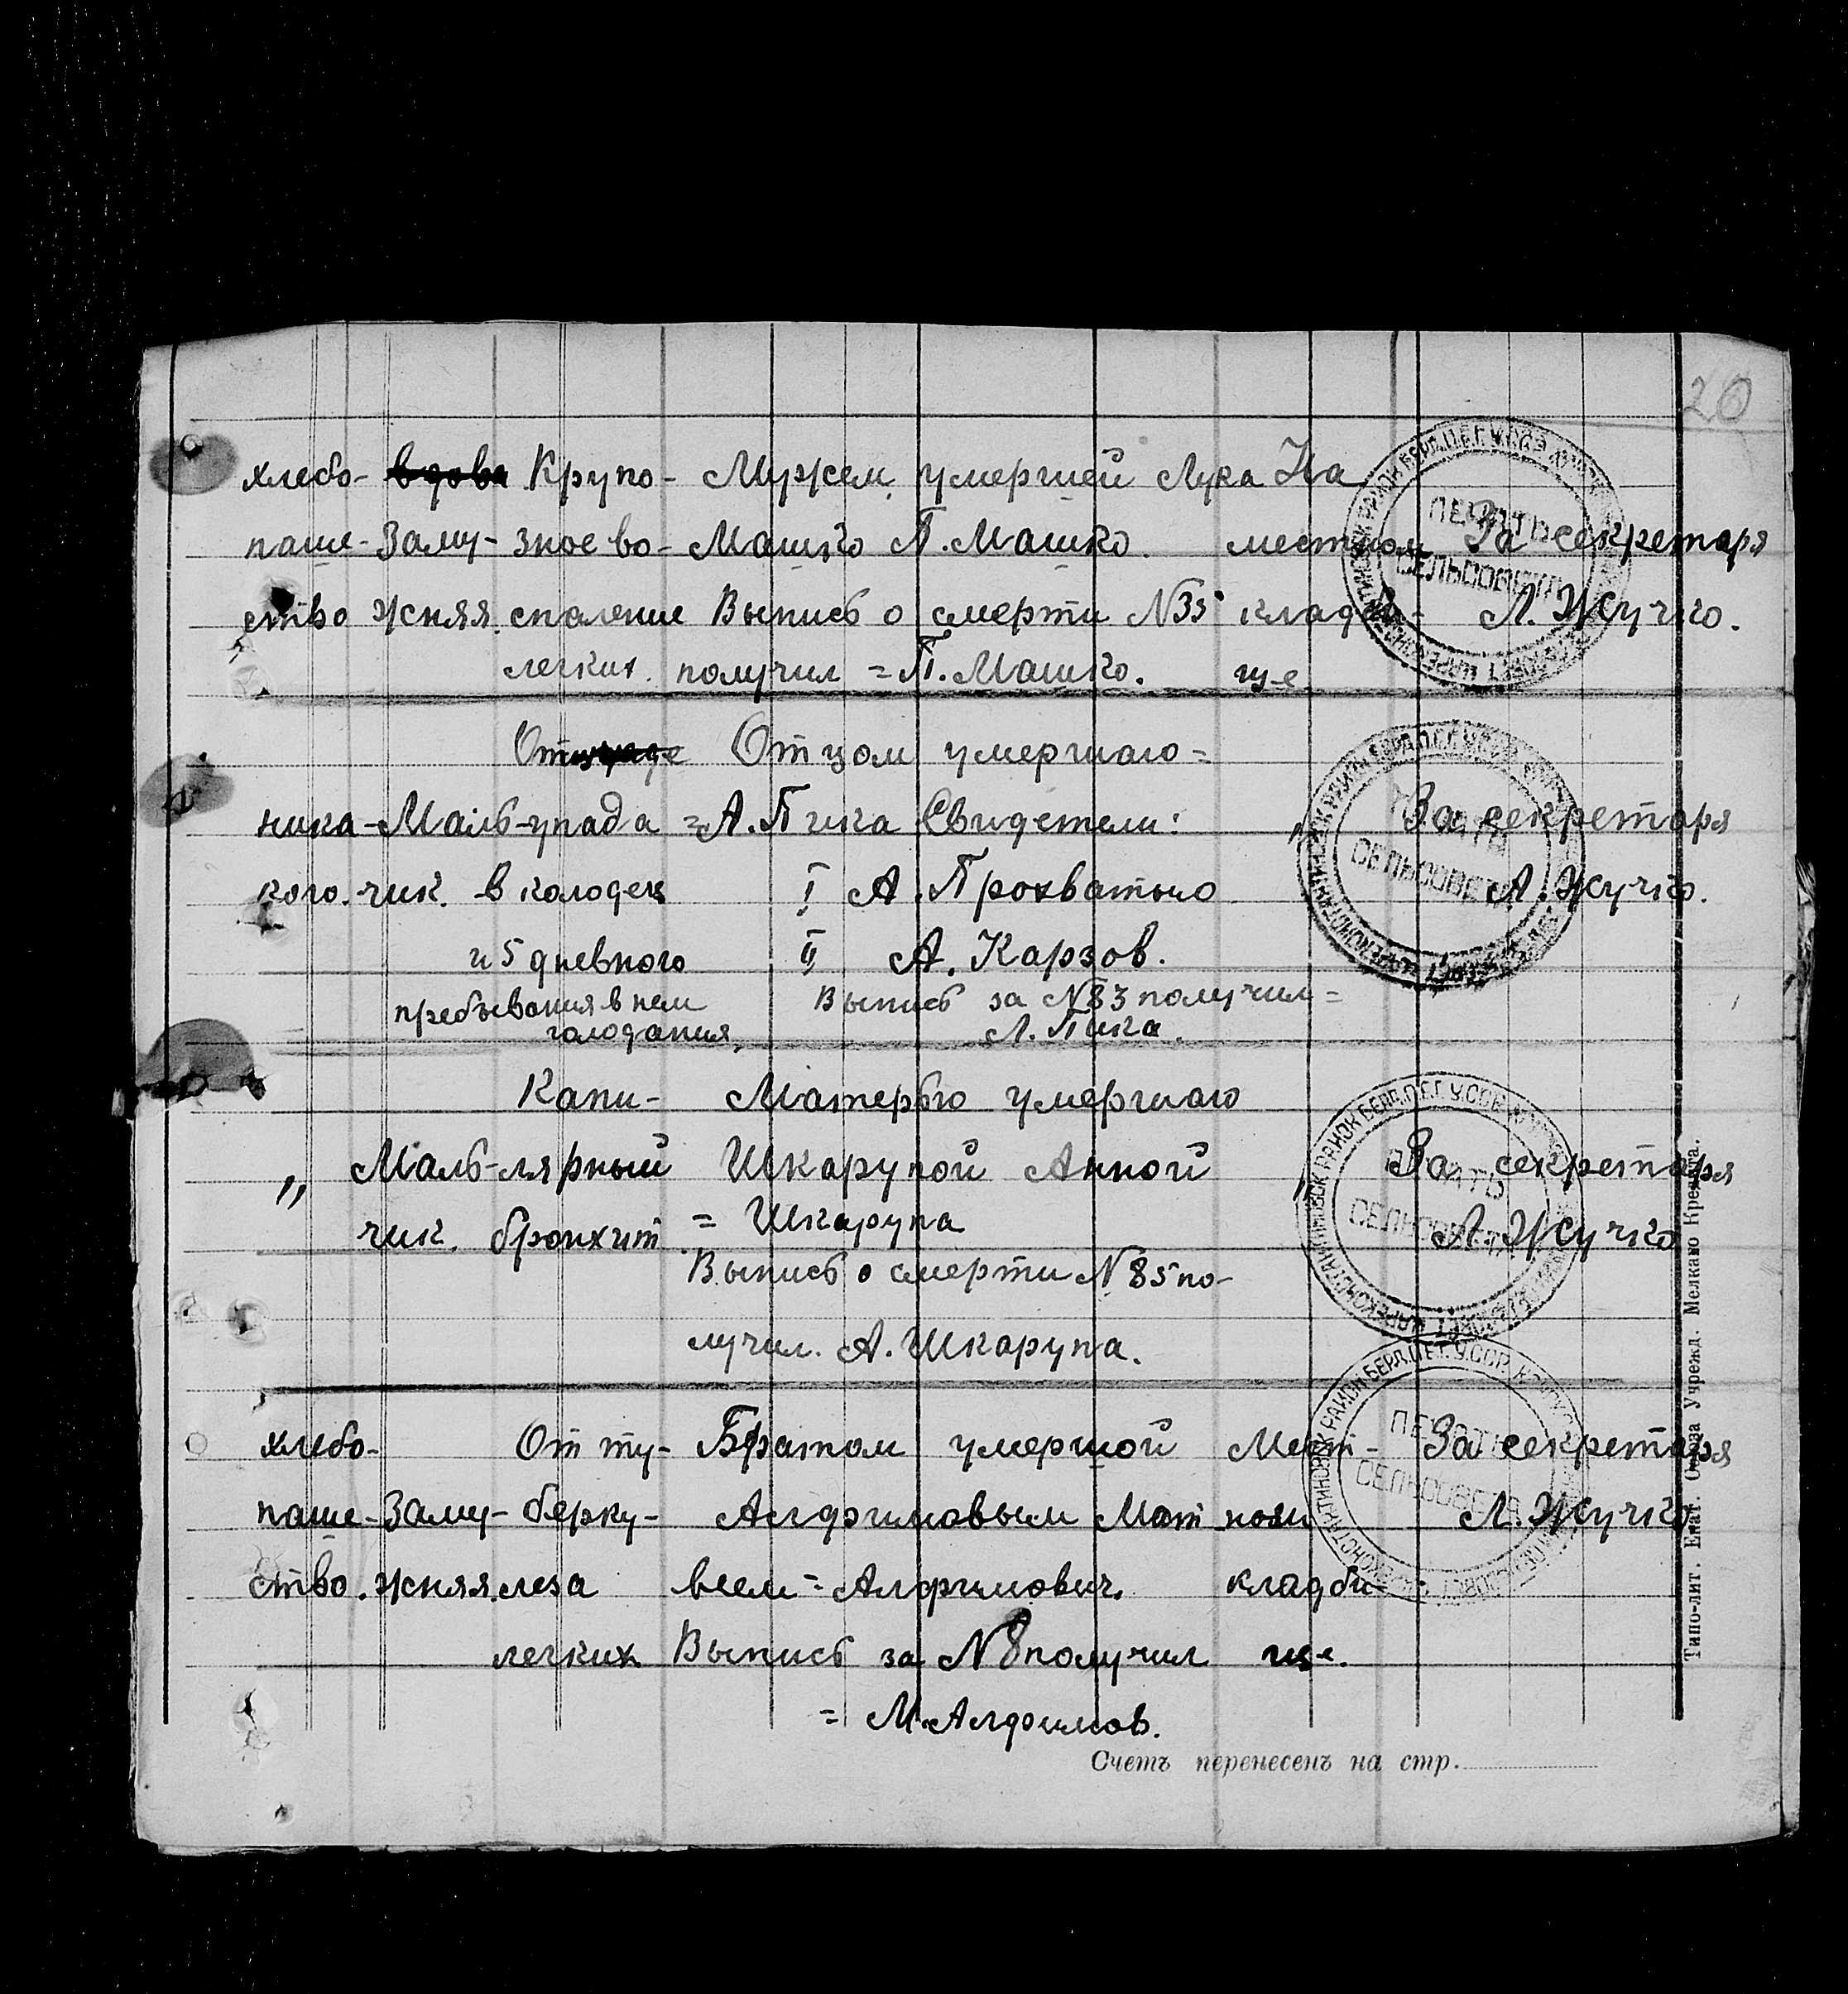 20
хлебо- вдова Крупо- Мужем умершей Лука На
паше- Заму- зное во- Машко П. Машко. местном За секретаря
ство жняя. спаление Выпись о смерти N35 кладби- Л. Жучко.
легких. получил = П. Машко. ще
От Отцом умершаго =
ника- Маль- упада = А. Пика Свидетели: " За секретаря
кого. чик. в колодец I А. Прохватыло Л. Жучко.
и 5 дневного II А. Карзов.
пребывания в нем Выпись за N83 получил =
голодания, Л. Пика.
Капи- Матерью умершаго
" Маль- лярный Шкарупой Анной " За секретаря
чик. бронхит = Шкарупа Л. Жучко
Выпись о смерти N 85 по-
лучил. А. Шкарупа.
хлебо- От ту- Братом умершой Мест- За секретаря
паше- Заму- берку- Алфимовым Мат ном Л. Жучко
ство. жняя. леза веем = Алфимович. кладби-
легких Выпись за N 8 получил ще.
= М. Алфимов.
Счетъ перенесенъ на стр.
ПЕЧАТЬ
СЕЛЬСОВЕТА
ПЕЧАТЬ
СЕЛЬСОВЕТА
ПЕЧАТЬ
СЕЛЬСОВЕТА
ПЕЧАТЬ
СЕЛЬСОВЕТА
Типо-лит. Екат. Учрежд. Мелкаго Кредита.